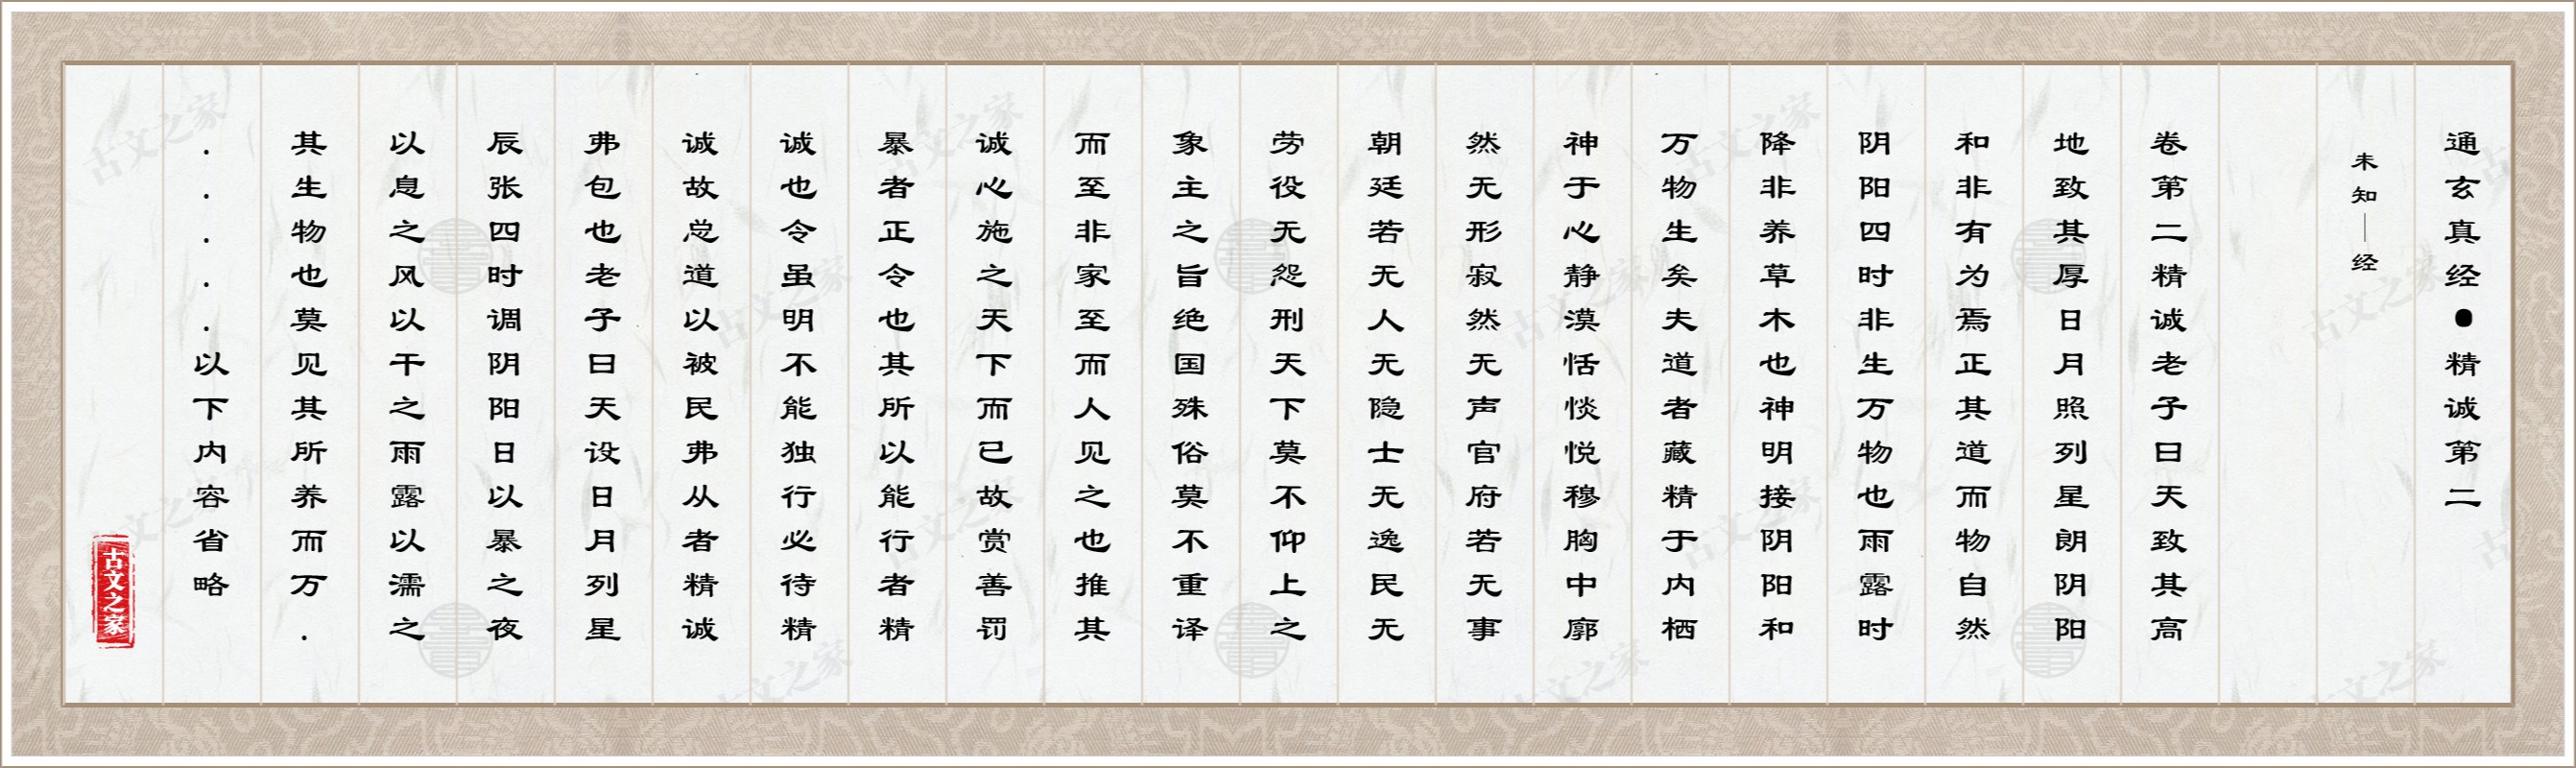 通玄真经●精诚第二
未知—经
卷第二精诚老子曰天致其高
地致其厚日月照列星朗阴阳
和非有为焉正其道而物自然
阴阳四时非生万物也雨露时
降非养草木也神明接阴阳和
万物生矣夫道者藏精于内栖
神于心静漠恬惔悦穆胸中廓
然无形寂然无声官府若无事
朝廷若无人无隐士无逸民无
劳役无怨刑天下莫不仰上之
象主之旨绝国殊俗莫不重译
而至非家至而人见之也推其
诚心施之天下而已故赏善罚
暴者正令也其所以能行者精
诚也令虽明不能独行必待精
诚故总道以被民弗从者精诚
弗包也老子曰天设日月列星
辰张四时调阴阳日以暴之夜
以息之风以干之雨露以濡之
其生物也莫见其所养而万.
.....以下内容省略
古文之家
古文之家